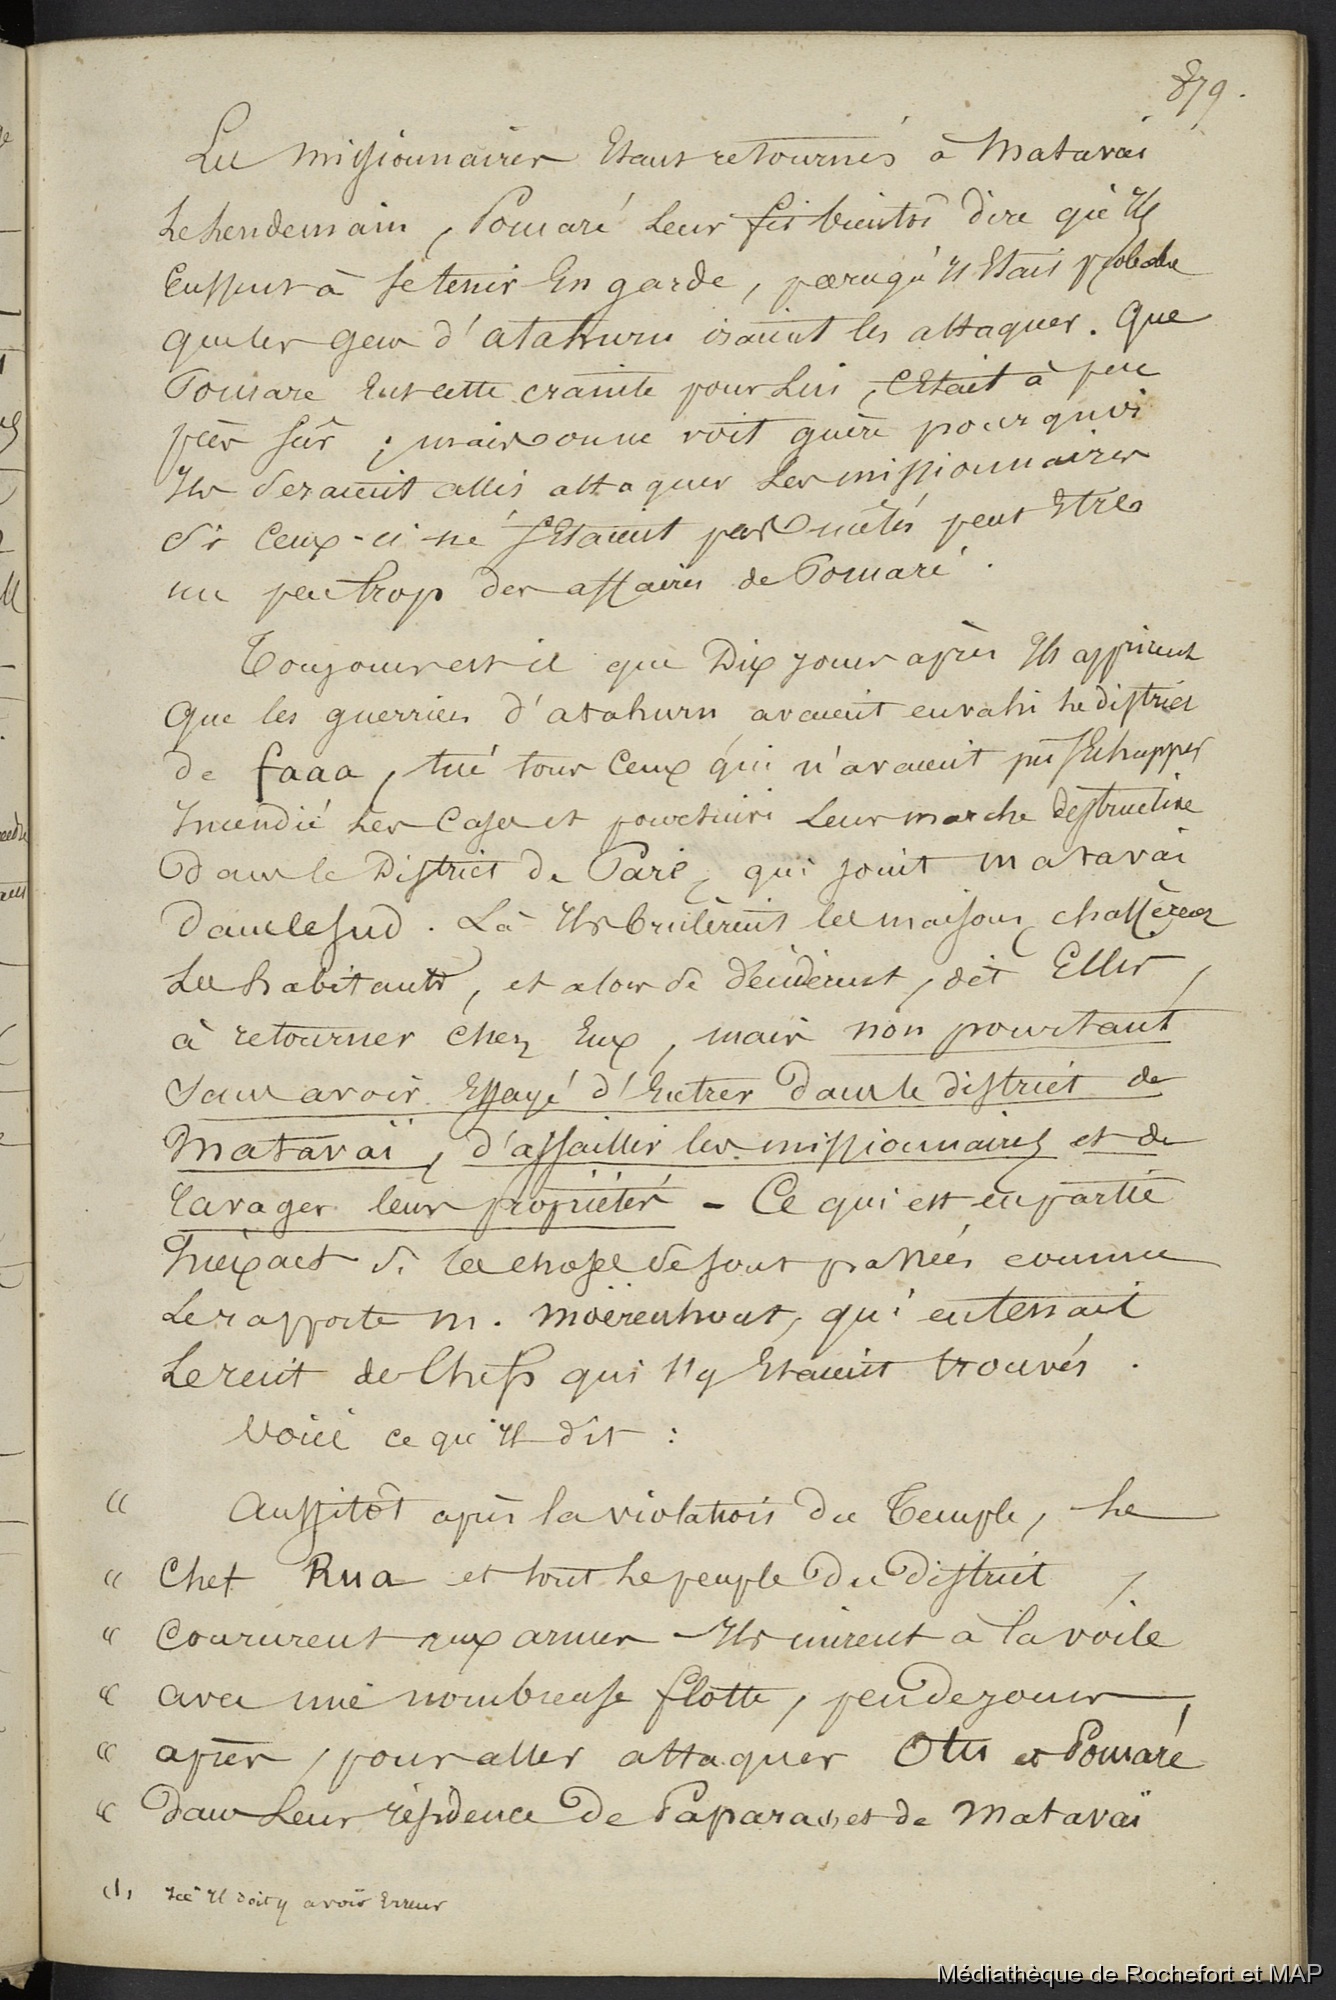 879.
Les missionnaires Etant retournés à Matavaï
Le lendemain, Pomaré leur fit bientôt dire qu'Ils
Eussent à se tenir En garde, parcequ'Il Etait probable
que les gens d'atahuru iraient les attaquer. Que
Pomaré Eut cette crainte pour Lui, c'Etait à peu
près sûr ; mais on ne voit guère pourquoi
Ils seraient allés attaquer Les missionnaires
si Ceux-ci ne s'Etaient pas mêlés peut Etre
un peu trop des affaires de Pomaré.
Toujours est il que Dix jours après Ils apprirent
Que les guerriers d'atahuru avaient envahi le district
de faaa, tué tous Ceux qui n'avaient pu s'Echapper
Incendié Les Cases et poursuivi Leur marche destructive
Dans le District de Paré, qui joint Matavaï
Dans le sud. Là Ils brulèrent les maisons, chassèrent
Les habitants, et alors se décidèrent, dit Ellis,
à retourner chez Eux, mais non pourtant
Sans avoir Essayé d'Entrer Dans le district de
Matavaï, d'assaillir les missionnaires et de
ravager leurs propriétés - Ce qui est en partie
Inéxact si les choses se sont passées comme
Le rapporte M. Moërenhout, qui en tenait
Le recit de Chefs qui s'y Etaient trouvés.
Voici ce qu'Il dit :
" Aussitôt après la violation du Temple, le
" Chef Rua et tout le peuple Du District,
" Coururent aux armes - Ils mirent à la voile
" avec une nombreuse flotte, peu de jours,
" après, pour aller attaquer Otu et Pomaré
" Dans Leur résidence De Papara (1) et de Matavaï
(1) Ici Il doit y avoir Erreur
Médiathèque de Rochefort et MAP